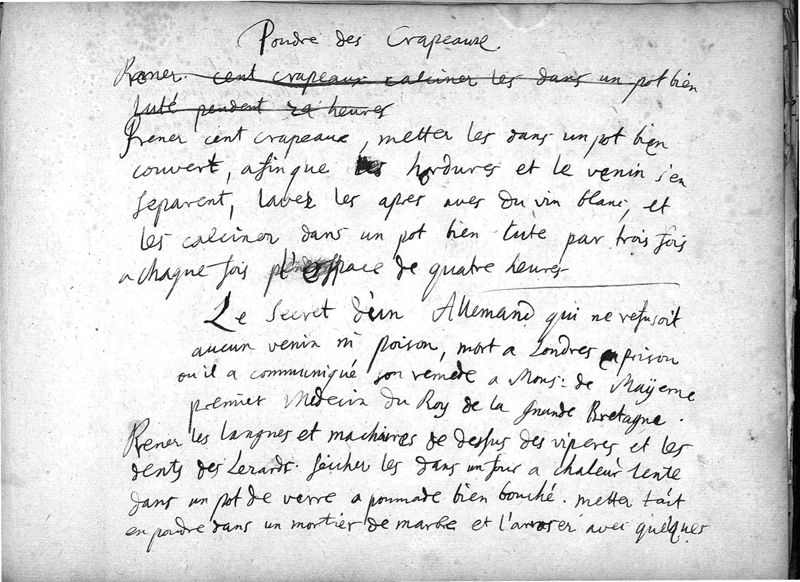 Poudre des Crapeaux.
Prener. cent crapeaux calciner les dans un pot bien
luté pendent 24 heures
Prener cent crapeaux, metter les dans un pot bien
couvert, afin que les hordures et le venin s'en
separent, lavez les apres aves du vin blanc, et
les calciner dans un pot bien luté par trois fois
a chaque fois l'espace de quatre heures
Le Secret d'un Allemand qui ne refusoit
aucun venin ni poison, mort a Londres en prison
ou il a communiqué son remede a Mons: de Maÿerne
premier Medecin du Roy de la Grande Bretagne.
Prener les langues et machoires de dessus des viperes et les
dents des Lezards. secher les dans un four a chaleur lente
dans un pot de verre a poumade bien bouché. metter tout
en poudre dans un mortier de marbre et l'arroser avec quelques